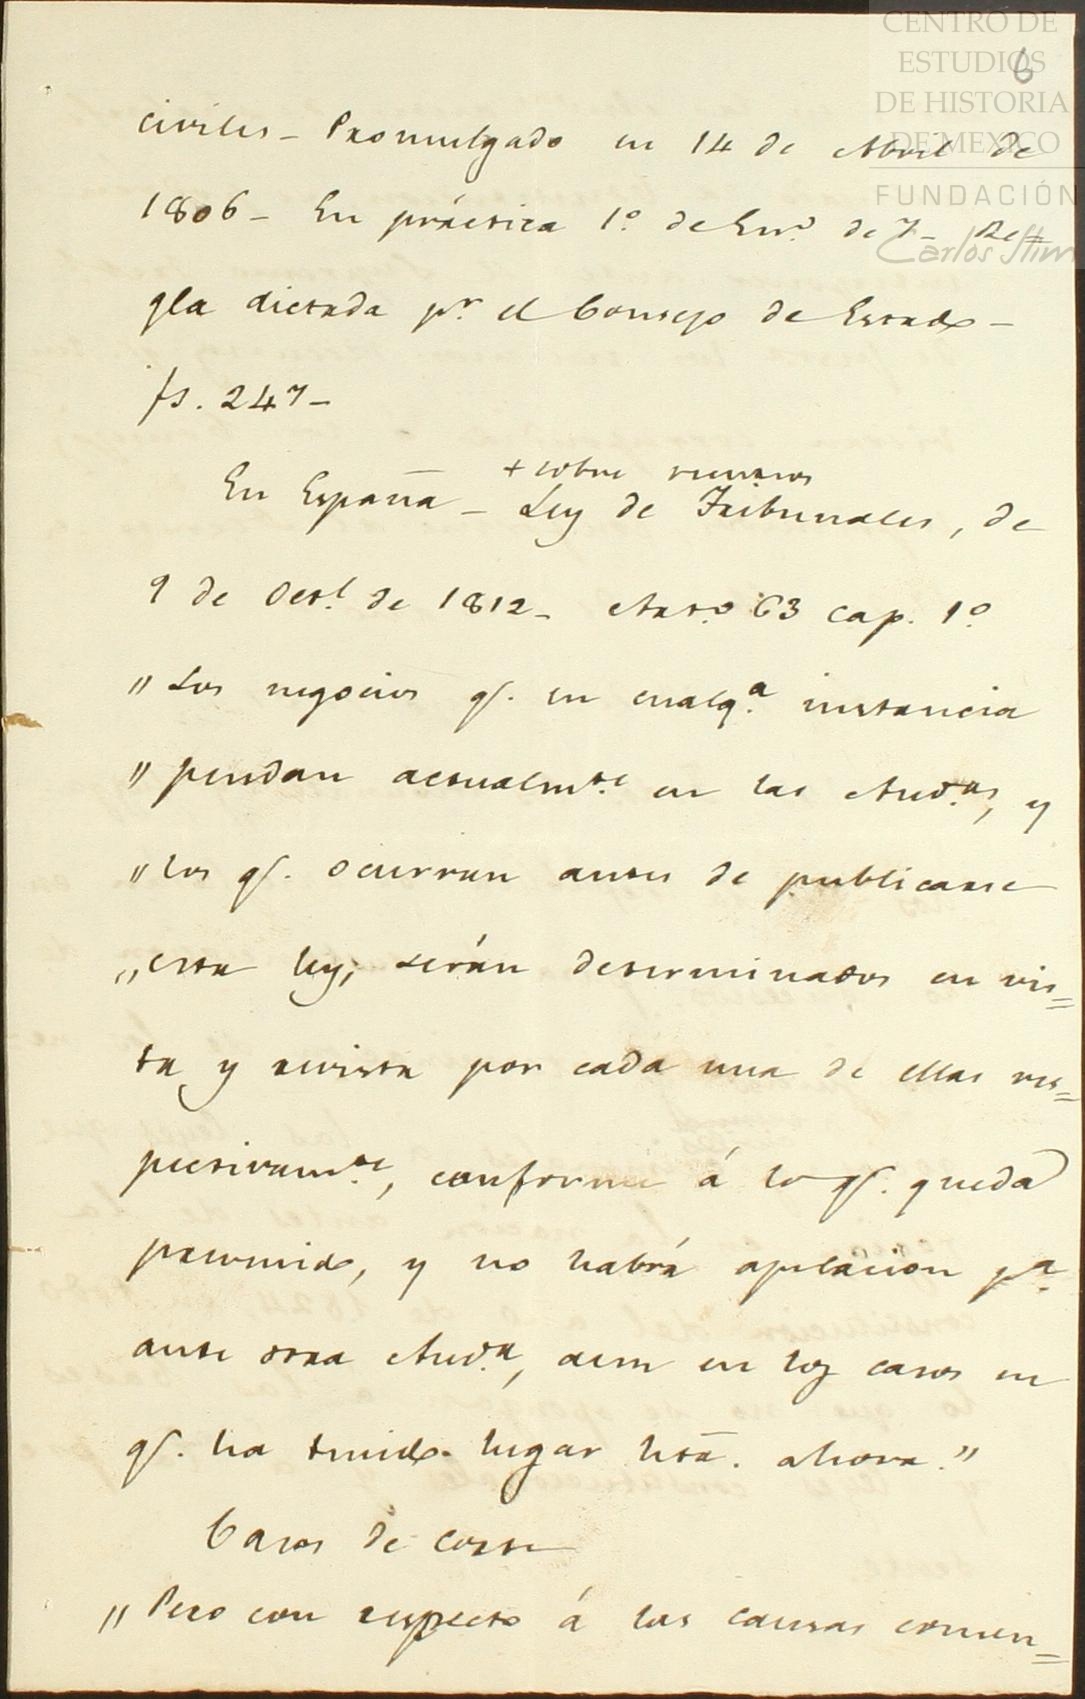 CENTRO DE
ESTUDIOS
DE HISTORIA
DE MEXICO
FUNDACIÓN
Carlos Slim
6
civiles - Promulgado en 14 de Abril de
1806 - En práctica 1º de Enº de 7 - Re=
gla dictada pr. el Consejo de Estado -
fs. 247 -
+ sobre recursos
En España - Ley de Tribunales, de
9 de Oct.l de 1812 - Arto. 63 cap. 1º
" Los negocios q. en cualq.a instancia
" pendan actualmte. en las Aud.as, y
" los q. ocurran antes de publicarse
" esta ley, serán determinados en vis=
ta y revista por cada una de ellas res=
pectivamte., conforme á lo q. queda
prevenido, y no habrá apelacion pa.
ante otra Aud.a, aun en los casos en
q. ha tenido lugar hta. ahora."
Casos de corte
" Pero con respecto á las causas comen=